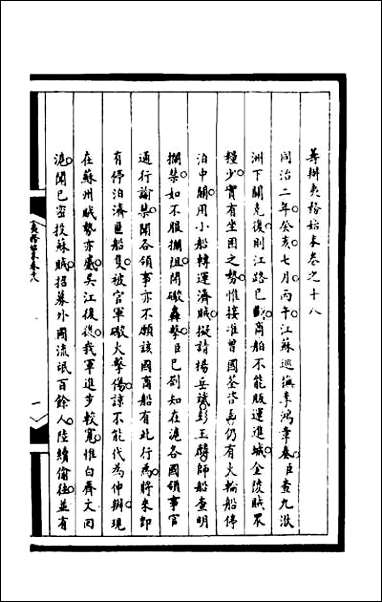 籌辦夷務始末卷之十八
同治二年癸亥七月丙午江蘇巡撫李鴻章奏臣查九洑
洲下關克復則江路已斷商船不能販運進城金陵賊眾
糧少實有坐困之勢惟接准曾國荃咨再仍有火輪船停
泊中關用小船轉運濟賊擬請楊岳斌彭玉麟師船查明
攔禁如不服攔阻開礮轟擊臣已劄知在滬各國領事官
通行諭禁聞各領事亦不願該國商船有此行為將來即
有停泊濟匪船隻被官軍礮火擊傷諒不能代為伸辯現
在蘇州賊勢亦蹙吳江復後我軍進步較寬惟白齊文回
滬聞已密投蘇賊招募外國流氓百餘人陸續偷往並有
夷務始末卷十八
一